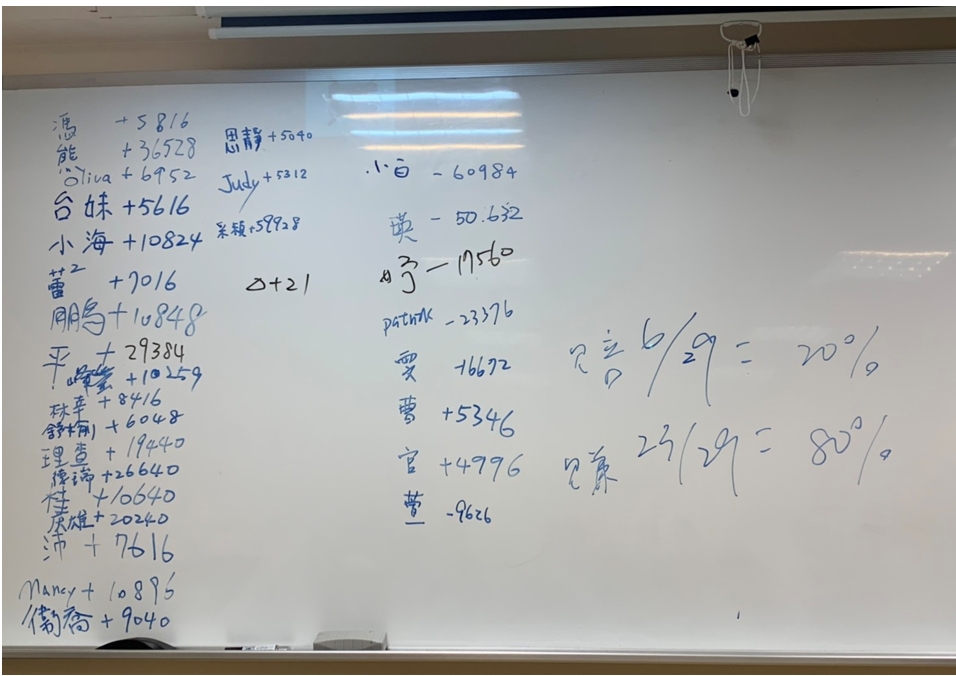 憑 +5816
熊 +36528
Oliva +6952
台妹 +5616
小海 +10824
蕾² +7016
鵬 +10848
平 +29384
+10259
林幸 +8416
+6048
理查 +19440
德瑞 +26640
桂 +10640
庚雄 +20240
沛 +7616
Nancy +10896
衛喬 +9040
思靜 +5040
Judy +5312
采穎 +59928
△+21
小白 -60984
瑛 -50.632
婷 -17560
Patrick -23376
雯 -16672
曹 +5346
官 +4996
萱 -9626
賠 6/29 = 20%
賺 23/29 = 80%